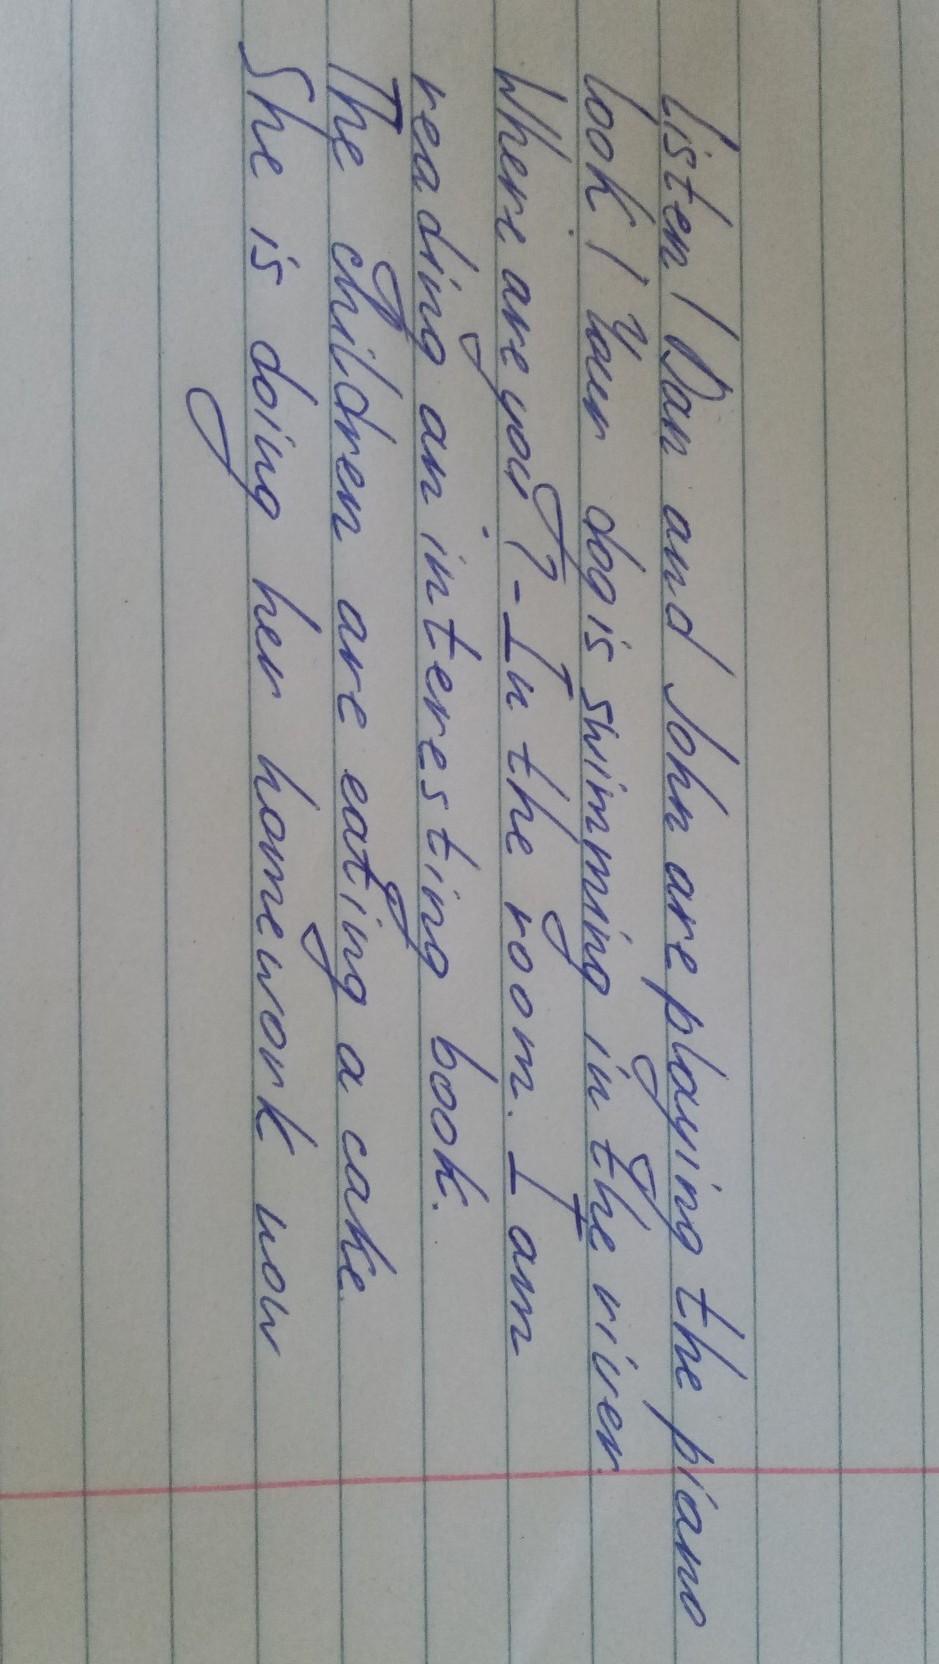 Listen! Dan and John are playing the piano
Look! Your dog is swimming in the river.
Where are you? - In the room. I am
reading an interesting book.
The children are eating a cake.
She is doing her homework now